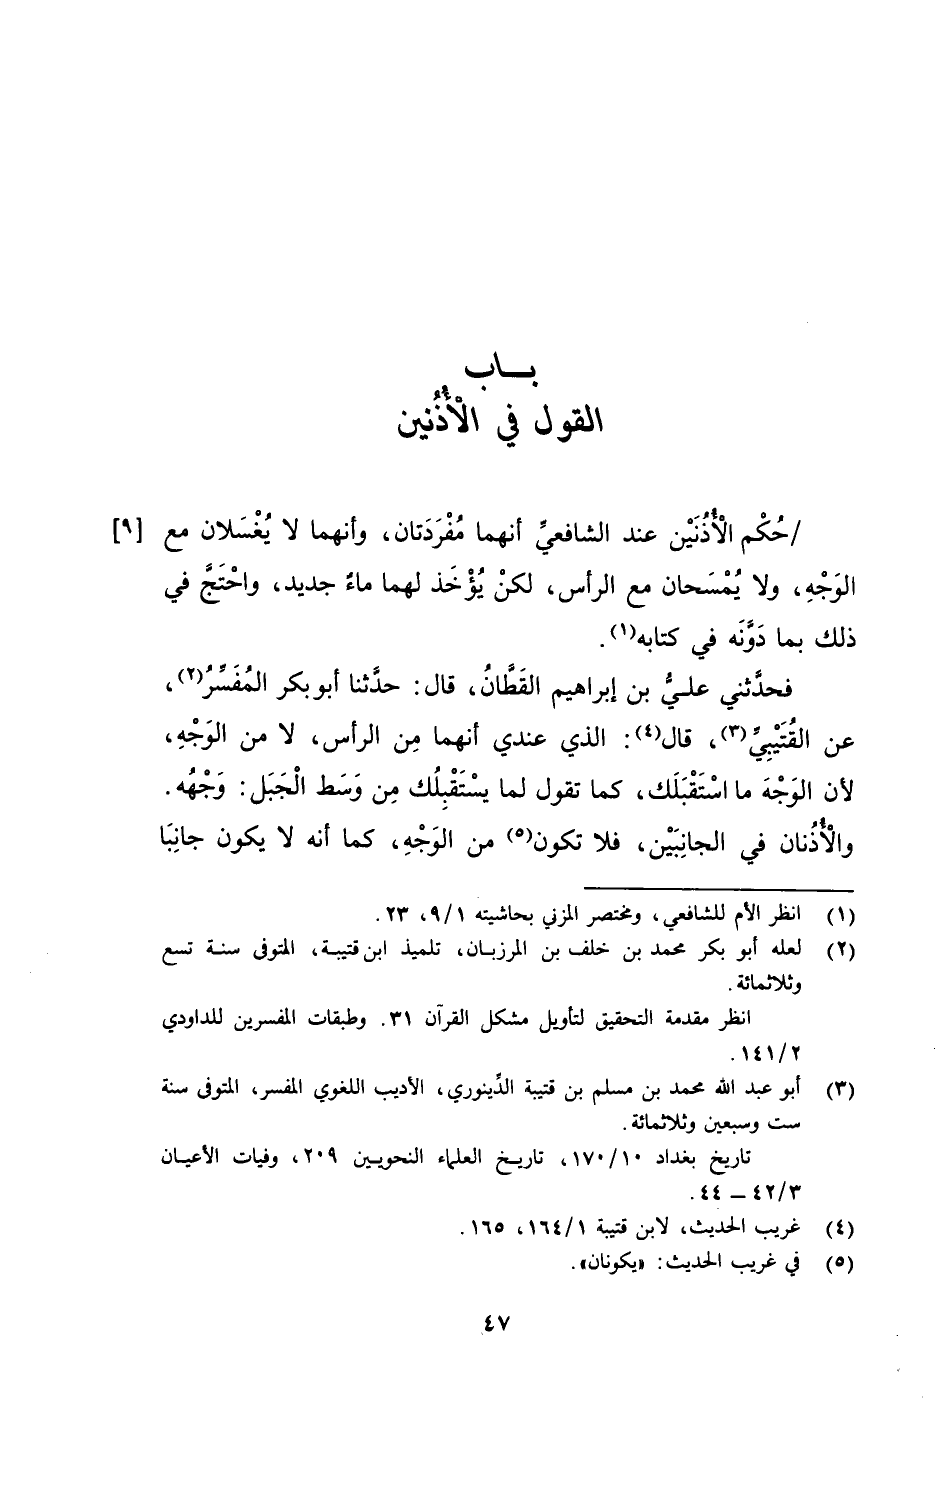 بـــاب
القول في الْأُذُنين
/حُكْم الْأُذُنَيْن عند الشافعيِّ أنهما مُفْرَدَتان، وأنهما لا يُغْسَلان مع [٩]
الوَجْهِ، ولا يُمْسَحان مع الرأس، لكنْ يُؤْخَذ لهما ماءٌ جديد، واحْتَجَّ في
ذلك بما دَوَّنَه في كتابه(١).
فحدَّثني عليُّ بن إبراهيم القَطَّانُ، قال: حدَّثنا أبو بكر المُفَسِّرُ(٢)،
عن القُتَيْبِيِّ(٣)، قال(٤): الذي عندي أنهما مِن الرأس، لا من الوَجْهِ،
لأن الوَجْهَ ما اسْتَقْبَلَك، كما تقول لما يسْتَقْبِلُك مِن وَسَط الْجَبَل: وَجْهُه.
والْأُذُنان في الجانِبَيْن، فلا تكون(٥) من الوَجْهِ، كما أنه لا يكون جانِبَا
(١) انظر الأم للشافعي، ومختصر المزني بحاشيته ٩/١، ٢٣.
(٢) لعله أبو بكر محمد بن خلف بن المرزبان، تلميذ ابن قتيبة، المتوفى سنة تسع
وثلاثمائة.
انظر مقدمة التحقيق لتأويل مشكل القرآن ٣١. وطبقات المفسرين للداودي
١٤١/٢.
(٣) أبو عبد الله محمد بن مسلم بن قتيبة الدِّينوري، الأديب اللغوي المفسر، المتوفى سنة
ست وسبعين وثلاثمائة.
تاريخ بغداد ١٧٠/١٠، تاريخ العلماء النحويين ٢٠٩، وفيات الأعيان
٤٢/٣ – ٤٤.
(٤) غريب الحديث، لابن قتيبة ١٦٤/١، ١٦٥.
(٥) في غريب الحديث: «يكونان».
٤٧